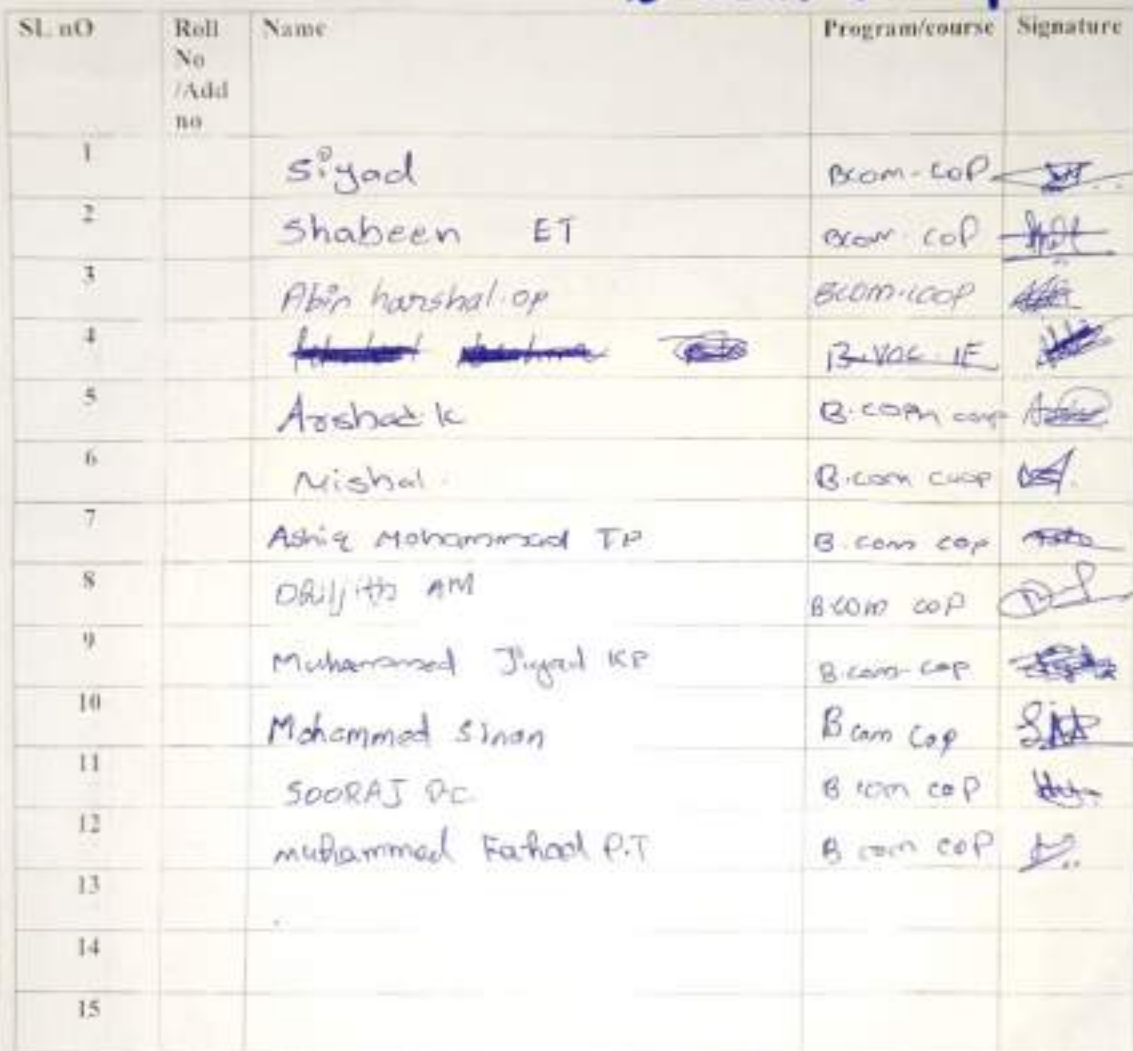 SL. nO Roll No /Add no Name Program/course Signature
1 Siyad Bcom-coP
2 Shabeen ET Bcom cop
3 Abin harshal.op BCOM-COOP
4 B.VOC IF
5 Arshad k B.com coop
6 Nishal. B.com coop
7 Ashiq Mohammad TP B.com cop
8 AM B COM COP
9 Muhammed Jiyad KP B.com-cop
10 Mohammed Sinan B com Cop
11 SOORAJ P.C. B com cop
12 muhammad Fahad P.T B com cop
13
14
15